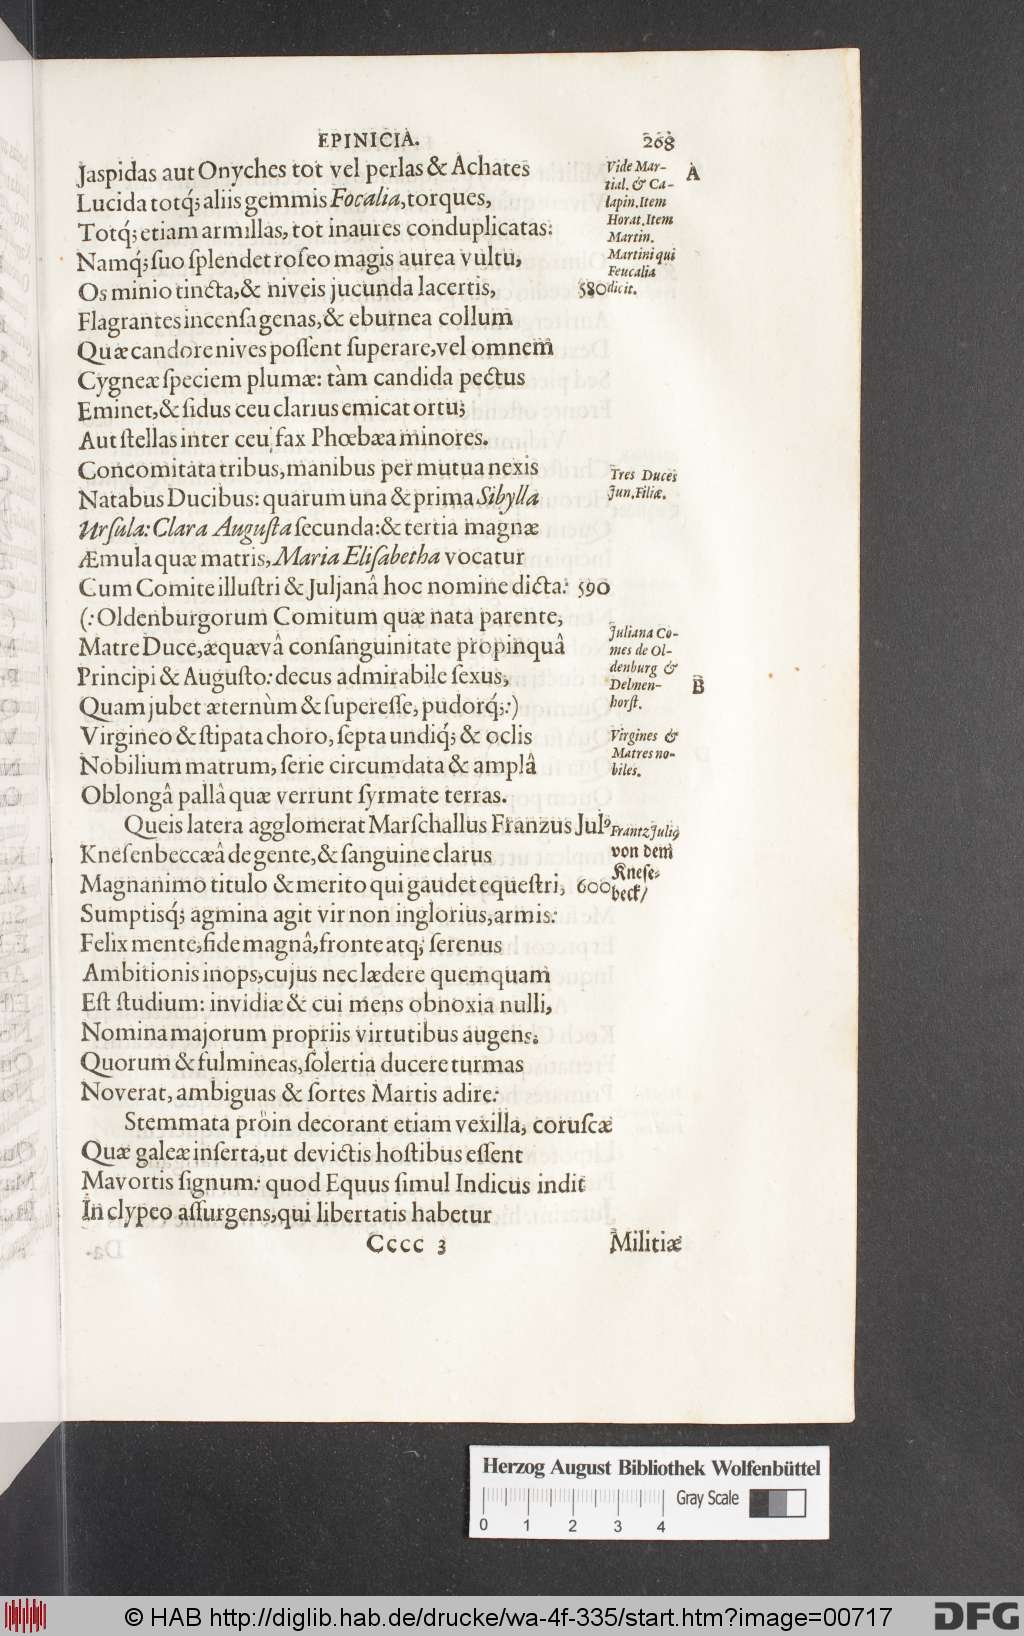 EPINICIA. 268
Jaspidas aut Onyches tot vel perlas & Achates
Lucida totq́; aliis gemmis Focalia, torques,
Totq́; etiam armillas, tot inaures conduplicatas:
Namq́; suo splendet roseo magis aurea vultu,
Os minio tincta, & niveis jucunda lacertis, 580
Flagrantes incensa genas, & eburnea collum
Quæ candore nives possent superare, vel omnem
Cygneæ speciem plumæ: tàm candida pectus
Eminet, & sidus ceu clarius emicat ortu;
Aut stellas inter ceu fax Phœbæa minores.
Concomitata tribus, manibus per mutua nexis
Natabus Ducibus: quarum una & prima Sibylla
Ursula: Clara Augusta secunda: & tertia magnæ
Æmula quæ matris, Maria Elisabetha vocatur
Cum Comite illustri & Juljanâ hoc nomine dicta: 590
(: Oldenburgorum Comitum quæ nata parente,
Matre Duce, æquævâ consanguinitate propinquâ
Principi & Augusto: decus admirabile sexus,
Quam jubet æternùm & superesse, pudorq́;:)
Virgineo & stipata choro, septa undiq́; & oclis
Nobilium matrum, serie circumdata & amplâ
Oblongâ pallâ quæ verrunt syrmate terras.
Queis latera agglomerat Marschallus Franzus Jul⁹
Knesenbeccæâ de gente, & sanguine clarus
Magnanimo titulo & merito qui gaudet equestri, 600
Sumptisq́; agmina agit vir non inglorius, armis:
Felix mente, fide magnâ, fronte atq; serenus
Ambitionis inops, cujus nec lædere quemquam
Est studium: invidiæ & cui mens obnoxia nulli,
Nomina majorum propriis virtutibus augens:
Quorum & fulmineas, solertia ducere turmas
Noverat, ambiguas & sortes Martis adire:
Stemmata pröin decorant etiam vexilla, coruscæ
Quæ galeæ inserta, ut devictis hostibus essent
Mavortis signum: quod Equus simul Indicus indit
In clypeo assurgens, qui libertatis habetur
Cccc 3 Militiæ
Vide Mar-
tial. & Ca-
lapin. Item
Horat. Item
Martin.
Martini qui
Feucalia
dicit.
A
Tres Duces
Jun. Filiæ.
Juliana Co-
mes de Ol-
denburg &
Delmen-
horst.
B
Virgines &
Matres no-
biles.
Frantz Juli⁹
von dem
Knese-
beck/
Herzog August Bibliothek Wolfenbüttel
Gray Scale
0 1 2 3 4
© HAB http://diglib.hab.de/drucke/wa-4f-335/start.htm?image=00717
DFG